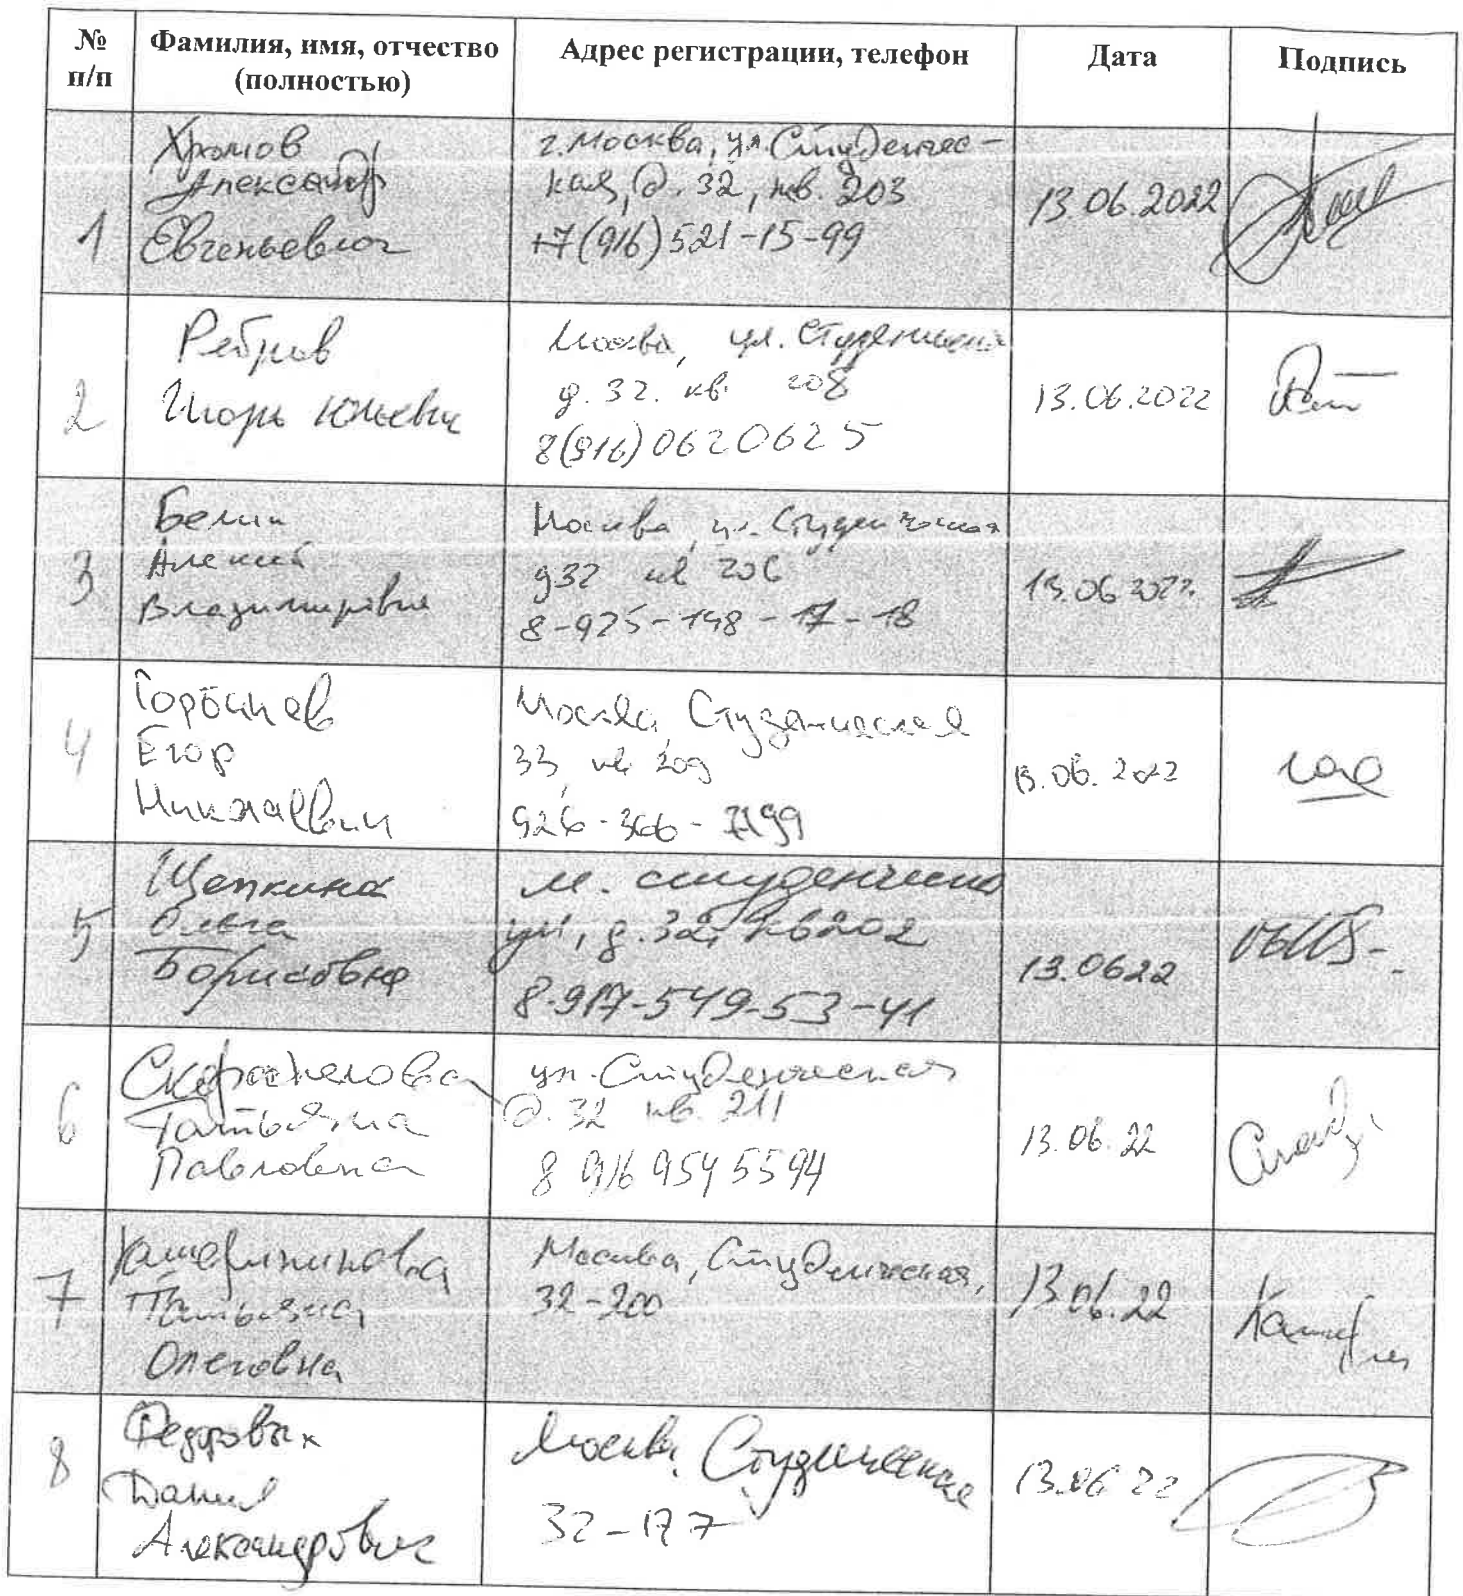 № п/п
Фамилия, имя, отчество (полностью)
Адрес регистрации, телефон
Дата
Подпись
1
Хромов
Александр
Евгеньевич
г. Москва, ул. Студенчес-
кая, д. 32, кв. 203
+7(916)521-15-99
13.06.2022
2
Ребров
Игорь Юльевич
Москва, ул. Студенческая
д. 32. кв. 208
8(916)0620625
13.06.2022
3
Белин
Алексей
Владимирович
Москва, ул. Студенческая
д32 кв 206
8-925-148-17-18
13.06 2022.
4
Егор
Николаевич
Москва, Студенческая
33, кв 209
926-366-7199
13.06.2022
5
Щепкина
Ольга
Борисовна
м. студенческая
ул, д. 32, кв202
8-917-549-53-41
13.0622
6
Татьяна
Павловна
ул. Студенческая
д. 32 кв. 211
8 916 954 5594
13.06.22
7
Татьяна
Олеговна
Москва, Студенческая,
32-200
13.06.22
8
Федоровых
Данил
Александрович
Москва, Студенческая
32-177
13.06 22